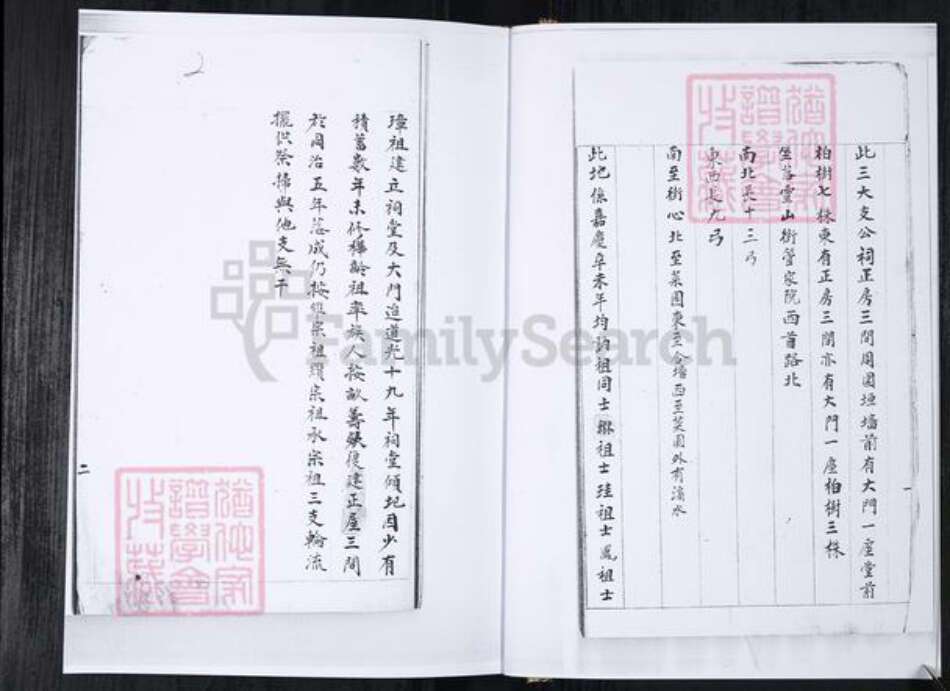 此三大支公祠正房三間周圍垣墻前有大門一座堂前
柏樹七株東有正房三間亦有大門一座柏樹三株
坐落靈山街管家院西首路北
南北長十三弓
東西長九弓
南至街心北至菜園東至仝墻西至菜園外有滴水
此地係嘉慶辛未年均 祖同士 祖士珪祖士鳳祖士
一
璋祖建立祠堂及大門迨道光十九年祠堂傾圮因少有
積蓄數年未修 齡祖率族人按畝籌錢復建正屋三間
於同治五年落成仍按 宗祖纘宗祖承宗祖三支輪流
擺供祭掃與他支無干
二
2
猶他家
譜學會
收藏
猶他家
譜學會
收藏
FamilySearch